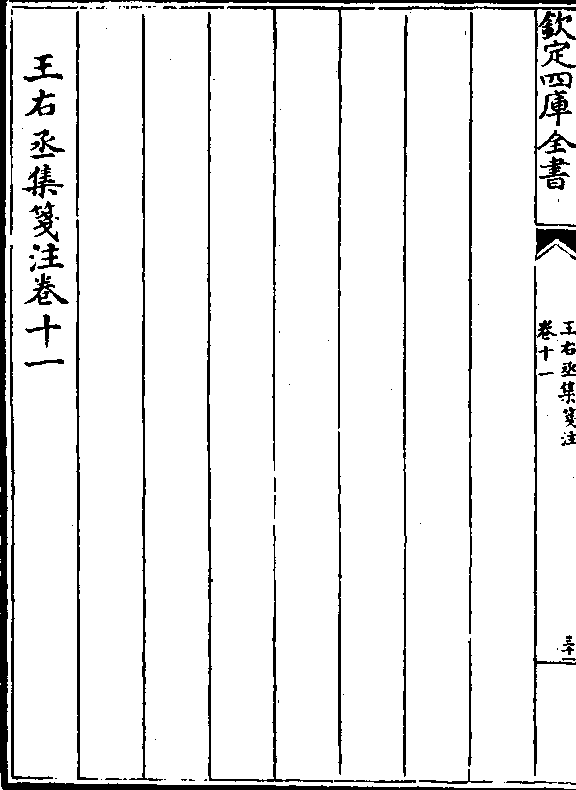 欽定四庫全書
王右丞集箋注
卷十一
三十一
王右丞集箋注卷十一